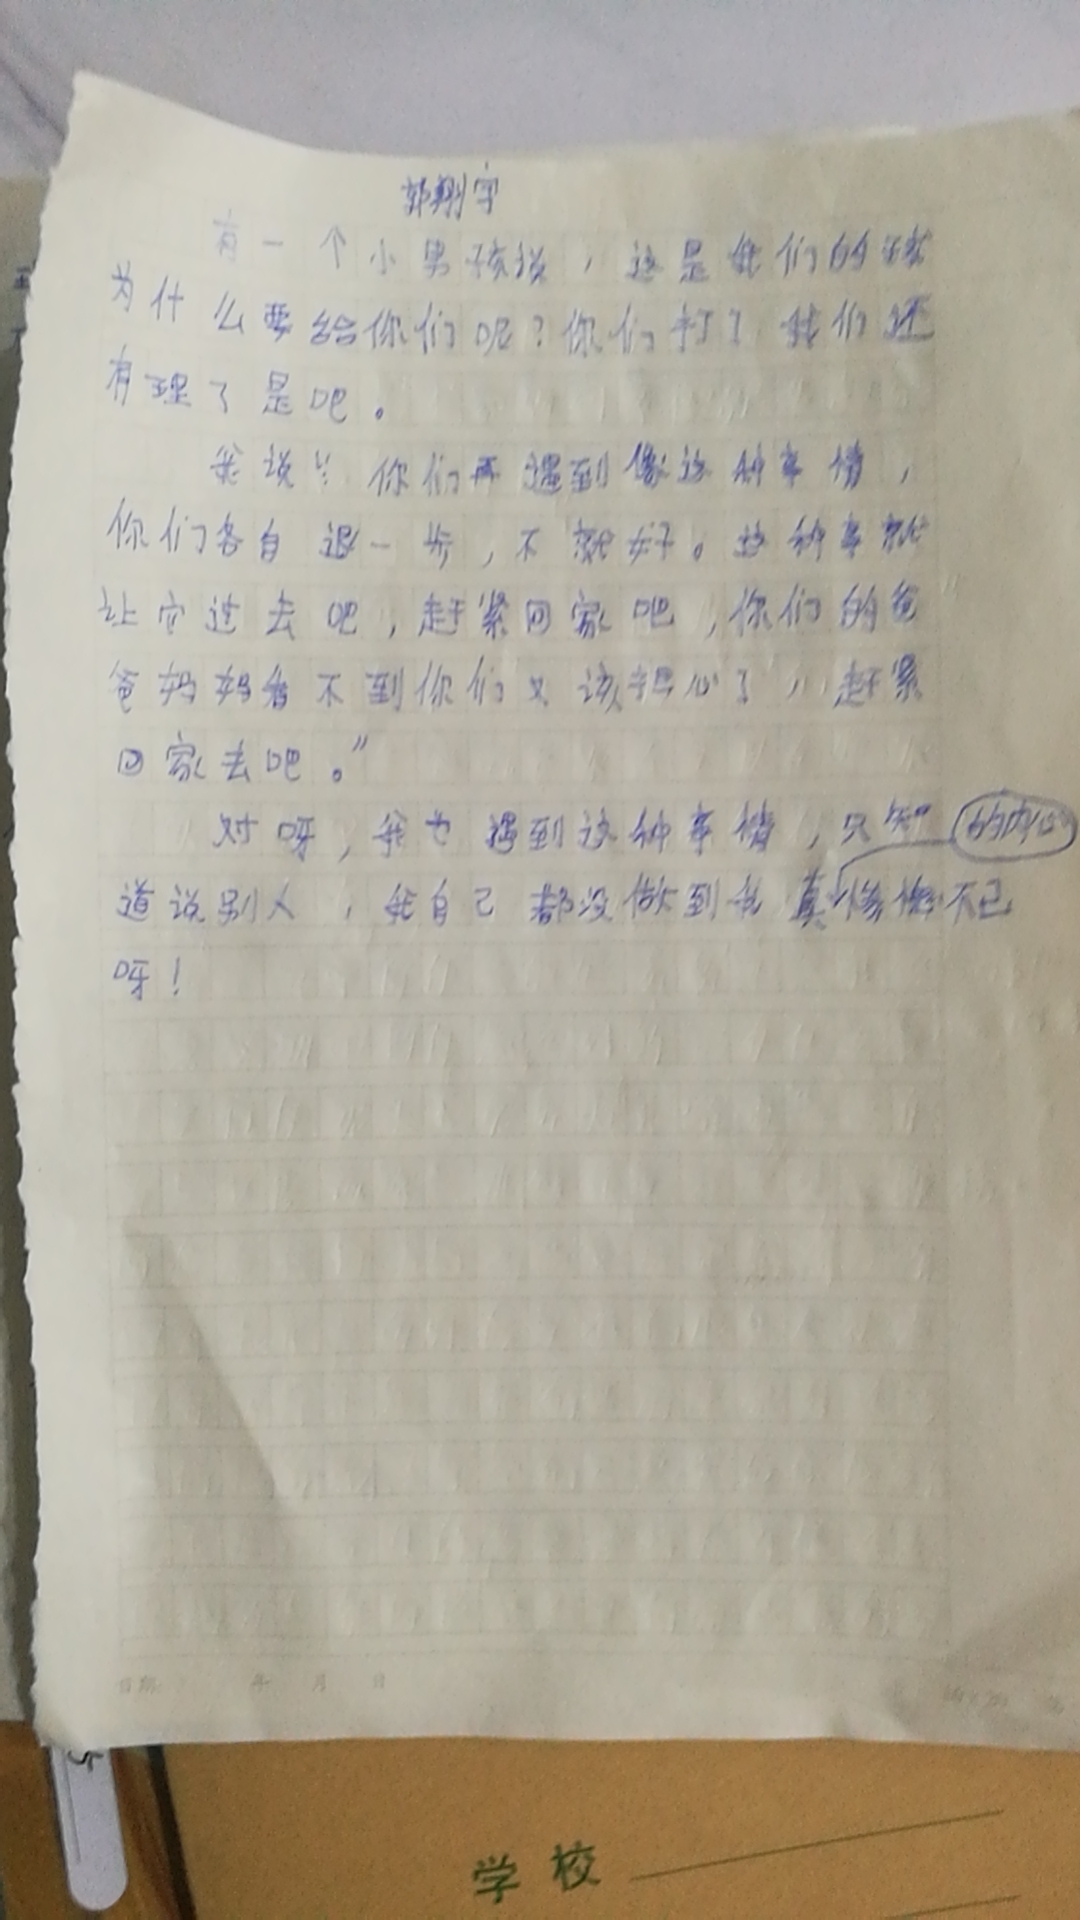 郭翔宇
有一个小男孩说，这是我们的球
为什么要给你们呢？你们打了我们还
有理了是吧。
我说：“你们再遇到像这种事情，
你们各自退一步，不就好。这种事就
让它过去吧，赶紧回家吧，你们的爸
爸妈妈看不到你们又该担心了，赶紧
回家去吧。”
对呀，我也遇到这种事情，只知
道说别人，我自己都没做到我真的内心惭愧不已
呀！
日期： 年 月 日
学校